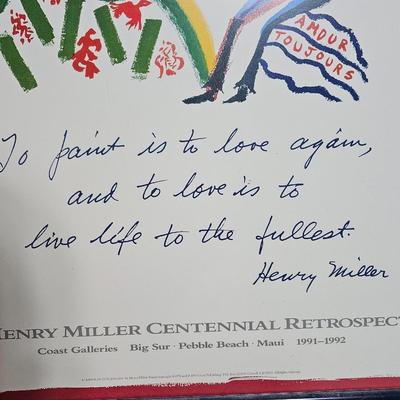 AMOUR
TOUJOURS
To paint is to love again,
and to love is to
live life to the fullest.
Henry Miller
HENRY MILLER CENTENNIAL RETROSPECT
Coast Galleries Big Sur · Pebble Beach · Maui 1991–1992